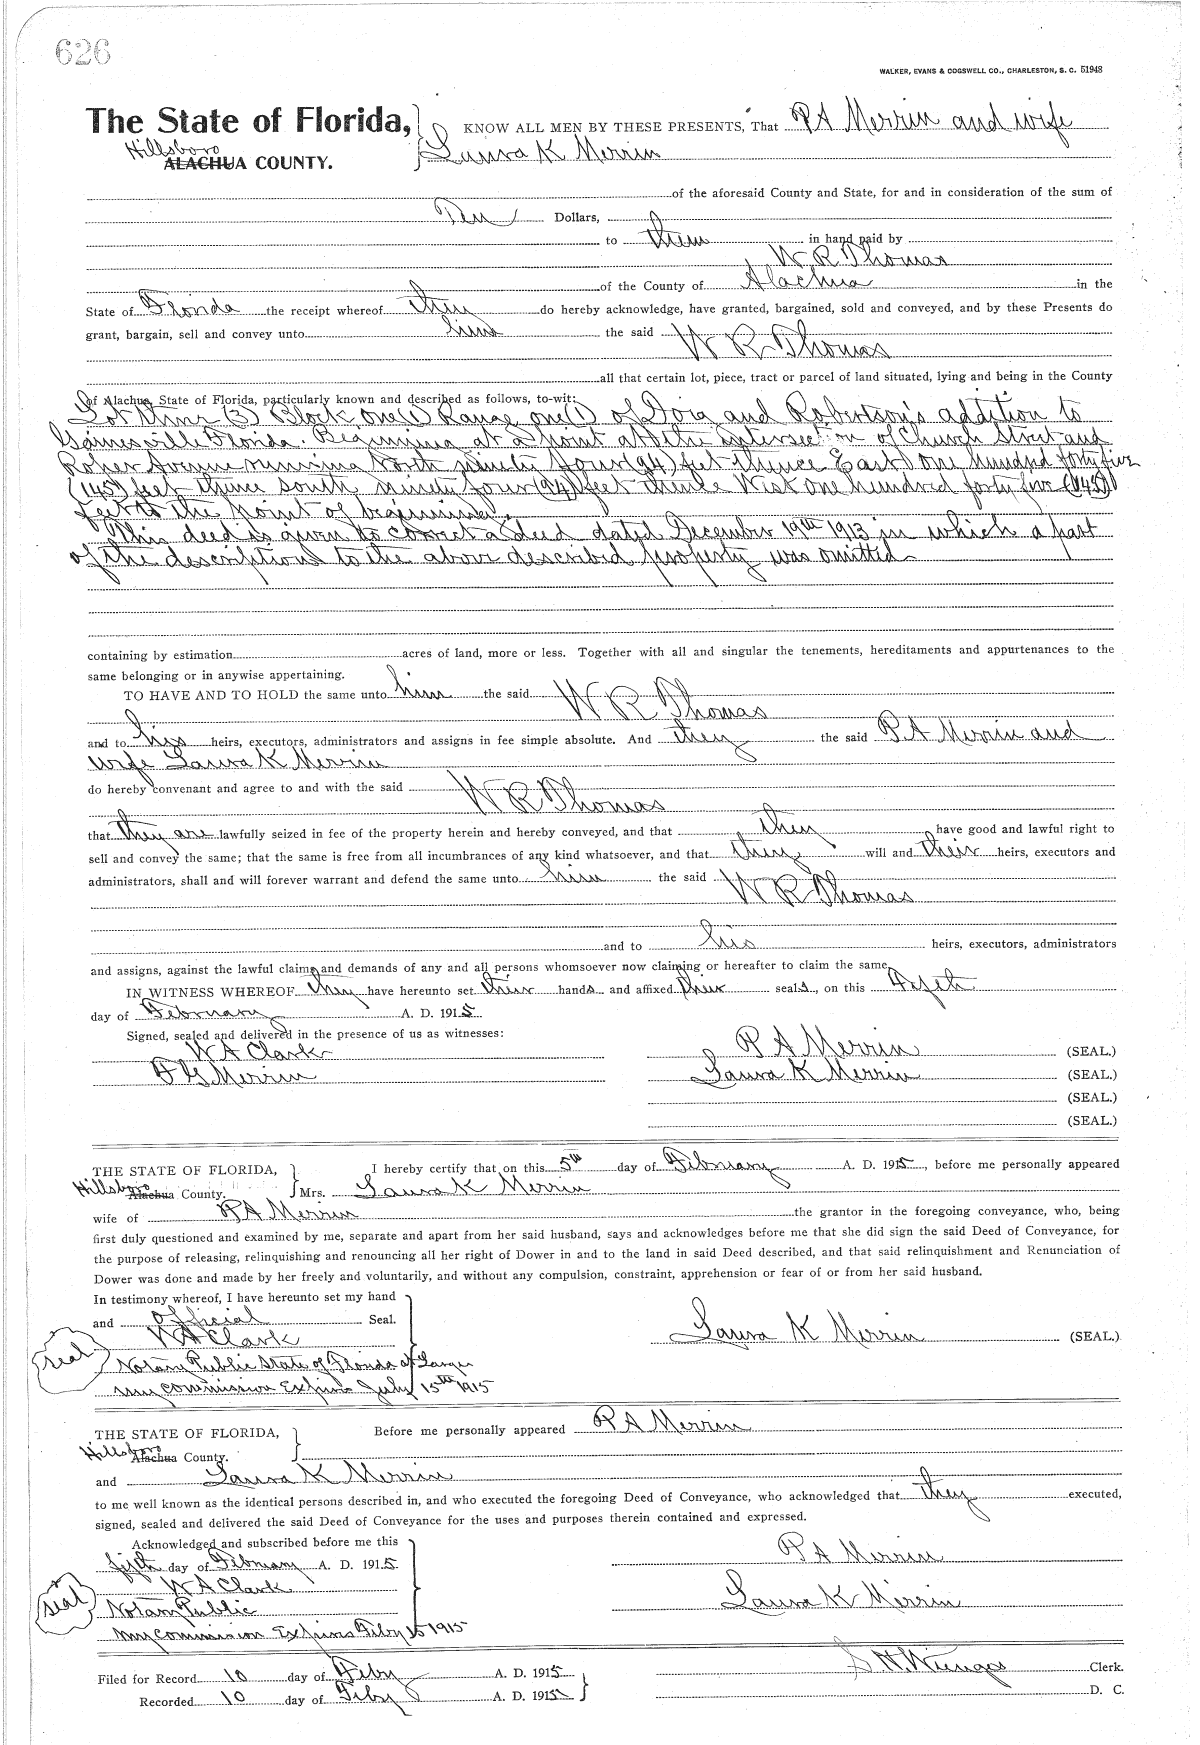 626
WALKER, EVANS & COGSWELL CO., CHARLESTON, S. C. 51948
The State of Florida, KNOW ALL MEN BY THESE PRESENTS, That R A Merrin and wife
Hillsboro
ALACHUA COUNTY. Laura K Merrin
of the aforesaid County and State, for and in consideration of the sum of
Ten Dollars,
to them in hand paid by
W R Thomas
of the County of Alachua in the
State of Florida the receipt whereof they do hereby acknowledge, have granted, bargained, sold and conveyed, and by these Presents do
grant, bargain, sell and convey unto him the said W R Thomas
all that certain lot, piece, tract or parcel of land situated, lying and being in the County
of Alachua, State of Florida, particularly known and described as follows, to-wit:
Lot three (3) Block one (1) Range one (1) of Doig and Robertson's addition to
Gainesville Florida. Beginning at a point at the intersection of Church Street and
Roper Avenue running North ninety four (94) feet thence East one hundred forty five
(145) feet thence south ninety four (94) feet thence West one hundred forty five (145)
feet to the point of beginning.
This deed is given to correct a deed dated December 19th 1913 in which a part
of the descriptions to the above described property was omitted
containing by estimation acres of land, more or less. Together with all and singular the tenements, hereditaments and appurtenances to the
same belonging or in anywise appertaining.
TO HAVE AND TO HOLD the same unto him the said W R Thomas
and to his heirs, executors, administrators and assigns in fee simple absolute. And they the said R A Merrin and
wife Laura K Merrin
do hereby convenant and agree to and with the said W R Thomas
that they are lawfully seized in fee of the property herein and hereby conveyed, and that they have good and lawful right to
sell and convey the same; that the same is free from all incumbrances of any kind whatsoever, and that they will and their heirs, executors and
administrators, shall and will forever warrant and defend the same unto him the said W R Thomas
and to his heirs, executors, administrators
and assigns, against the lawful claims and demands of any and all persons whomsoever now claiming or hereafter to claim the same.
IN WITNESS WHEREOF they have hereunto set their hands and affixed their seals, on this Fifth
day of February A. D. 1915
Signed, sealed and delivered in the presence of us as witnesses:
W A Clark R A Merrin (SEAL.)
Merrin Laura K Merrin (SEAL.)
(SEAL.)
(SEAL.)
THE STATE OF FLORIDA, I hereby certify that on this 5th day of February A. D. 1915, before me personally appeared
Hillsboro
Alachua County. Mrs. Laura K Merrin
wife of R A Merrin the grantor in the foregoing conveyance, who, being
first duly questioned and examined by me, separate and apart from her said husband, says and acknowledges before me that she did sign the said Deed of Conveyance, for
the purpose of releasing, relinquishing and renouncing all her right of Dower in and to the land in said Deed described, and that said relinquishment and Renunciation of
Dower was done and made by her freely and voluntarily, and without any compulsion, constraint, apprehension or fear of or from her said husband.
In testimony whereof, I have hereunto set my hand
and official Seal.
W A Clark Laura K Merrin (SEAL.)
seal Notary Public State of Florida at Large
My commission Expires July 15th 1915
THE STATE OF FLORIDA, Before me personally appeared R A Merrin
Hillsboro
Alachua County.
and Laura K Merrin
to me well known as the identical persons described in, and who executed the foregoing Deed of Conveyance, who acknowledged that they executed,
signed, sealed and delivered the said Deed of Conveyance for the uses and purposes therein contained and expressed.
Acknowledged and subscribed before me this
fifth day of February A. D. 1915 R A Merrin
W A Clark Laura K Merrin
seal Notary Public
My commission Expires Feby 15 1915
Filed for Record 10 day of Feby A. D. 1915 Clerk.
Recorded 10 day of Feby A. D. 1915 D. C.